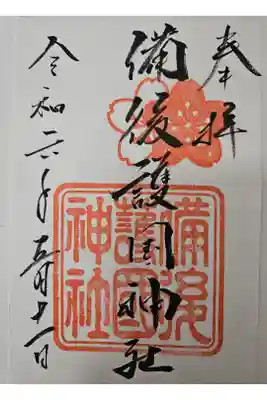 奉拝
備後護国神社
令和六年五月十一日
備後
護國
神社